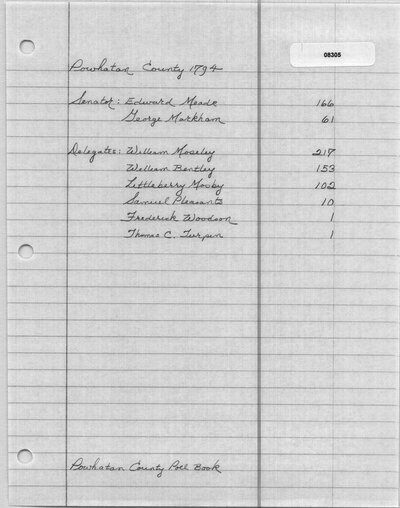 08305
Powhatan County 1794
Senator: Edward Meade 166
George Markham 61
Delegates: William Moseley 217
William Bentley 153
Littleberry Mosby 102
Samuel Pleasants 10
Frederick Woodson 1
Thomas C. Turpin 1
Powhatan County Poll Book